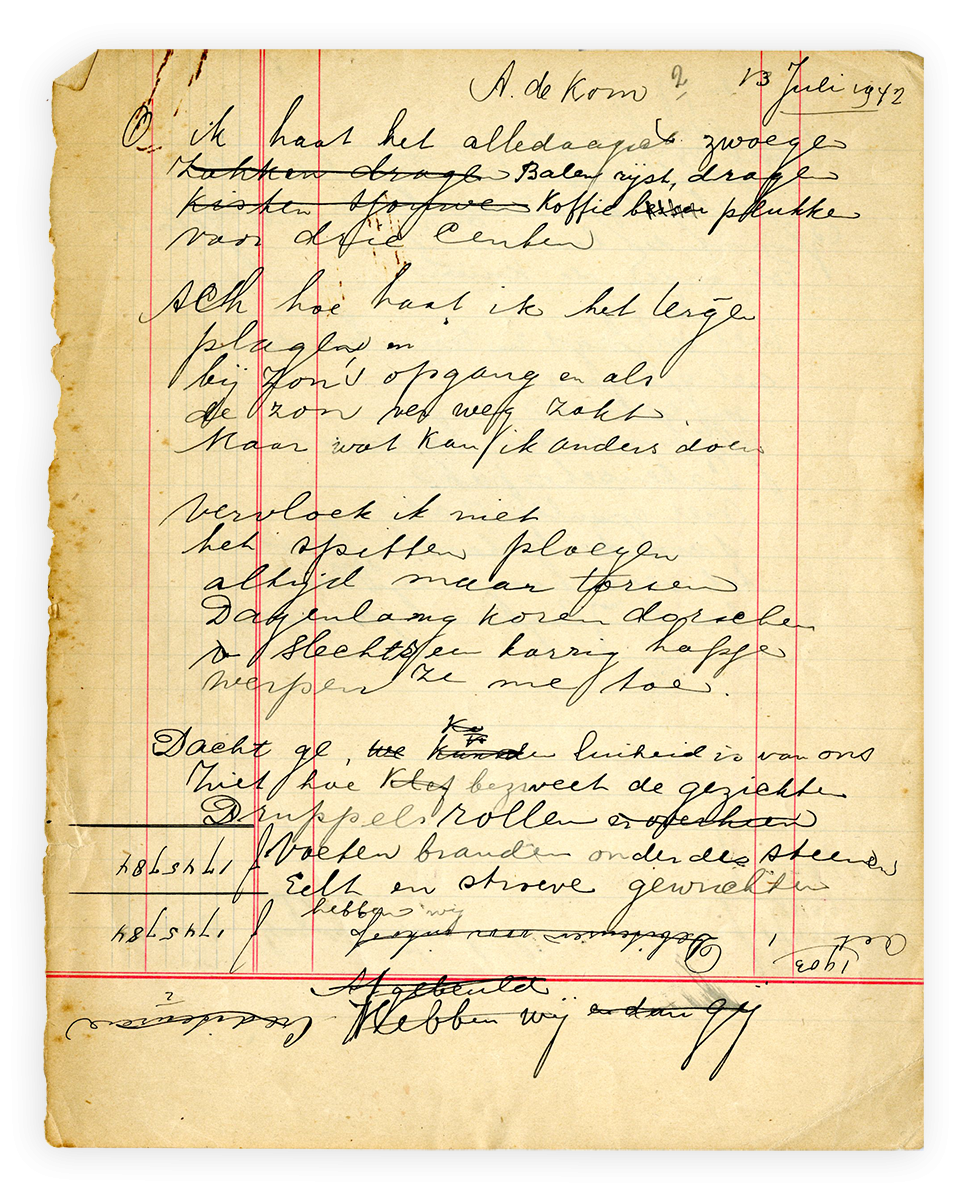 A. de Kom 2 13 Juli 1942
ik haat het alledaagse zwoegen
Zakken dragen Balen rijst, dragen
Kisten sjouwen Koffie plukken
voor drie Centen
Ach hoe haat ik het
plagen en
bij zon's opgang en als
de zon ver weg zakt
Maar wat kan ik anders doen
Vervloek ik niet
het spitten ploegen
altijd maar torsen
Dagenlang koren dorschen
Slechts een karrig hapje
werpen ze me toe.
Dacht ge, luiheid is van ons
Ziet hoe bezweet de gezichten
Druppels rollen
Voeten branden onder des steenen
1745784
Eelt en stroeve gewrichten
hebben wij
1745784
Oct 1903
Afgebeuld
Hebben wij en dan gij
Crediteuren